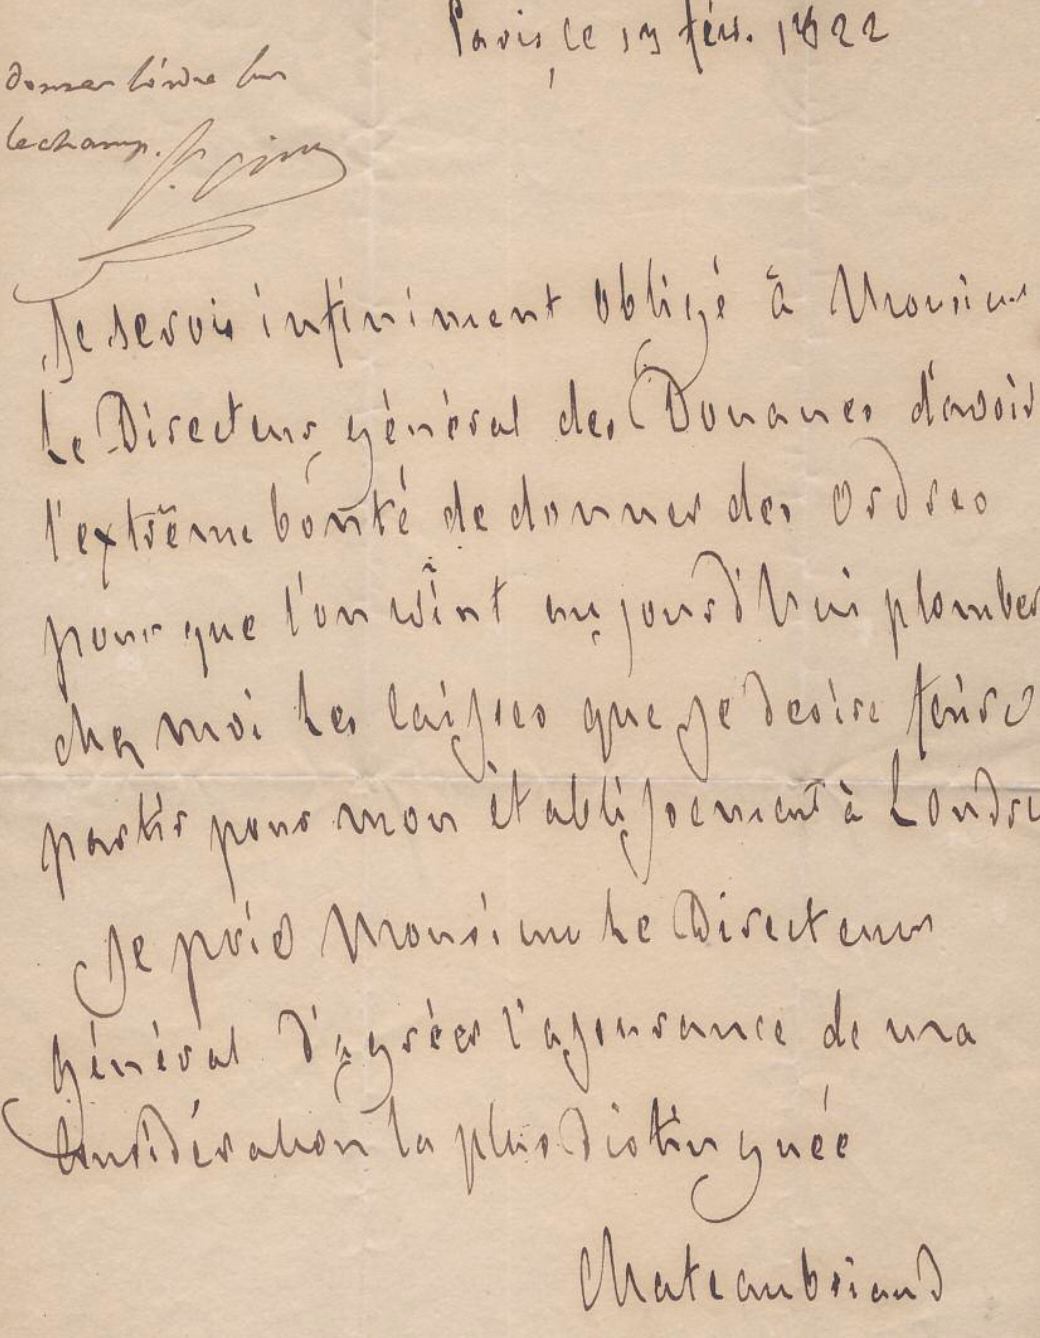 Paris, ce 17 fév. 1822
donner l'ordre sur
lechamp.
Je serois infiniment obligé à Monsieur
Le Directeur général des Douanes d'avoir
l'extrême bonté de donner des ordres
pour que l'on vînt aujourd'hui plomber
chez moi les caisses que je desire faire
partir pour mon établissement à Londres
Je prie Monsieur Le Directeur
général d'agréer l'assurance de ma
considération la plus distinguée
Chateaubriand